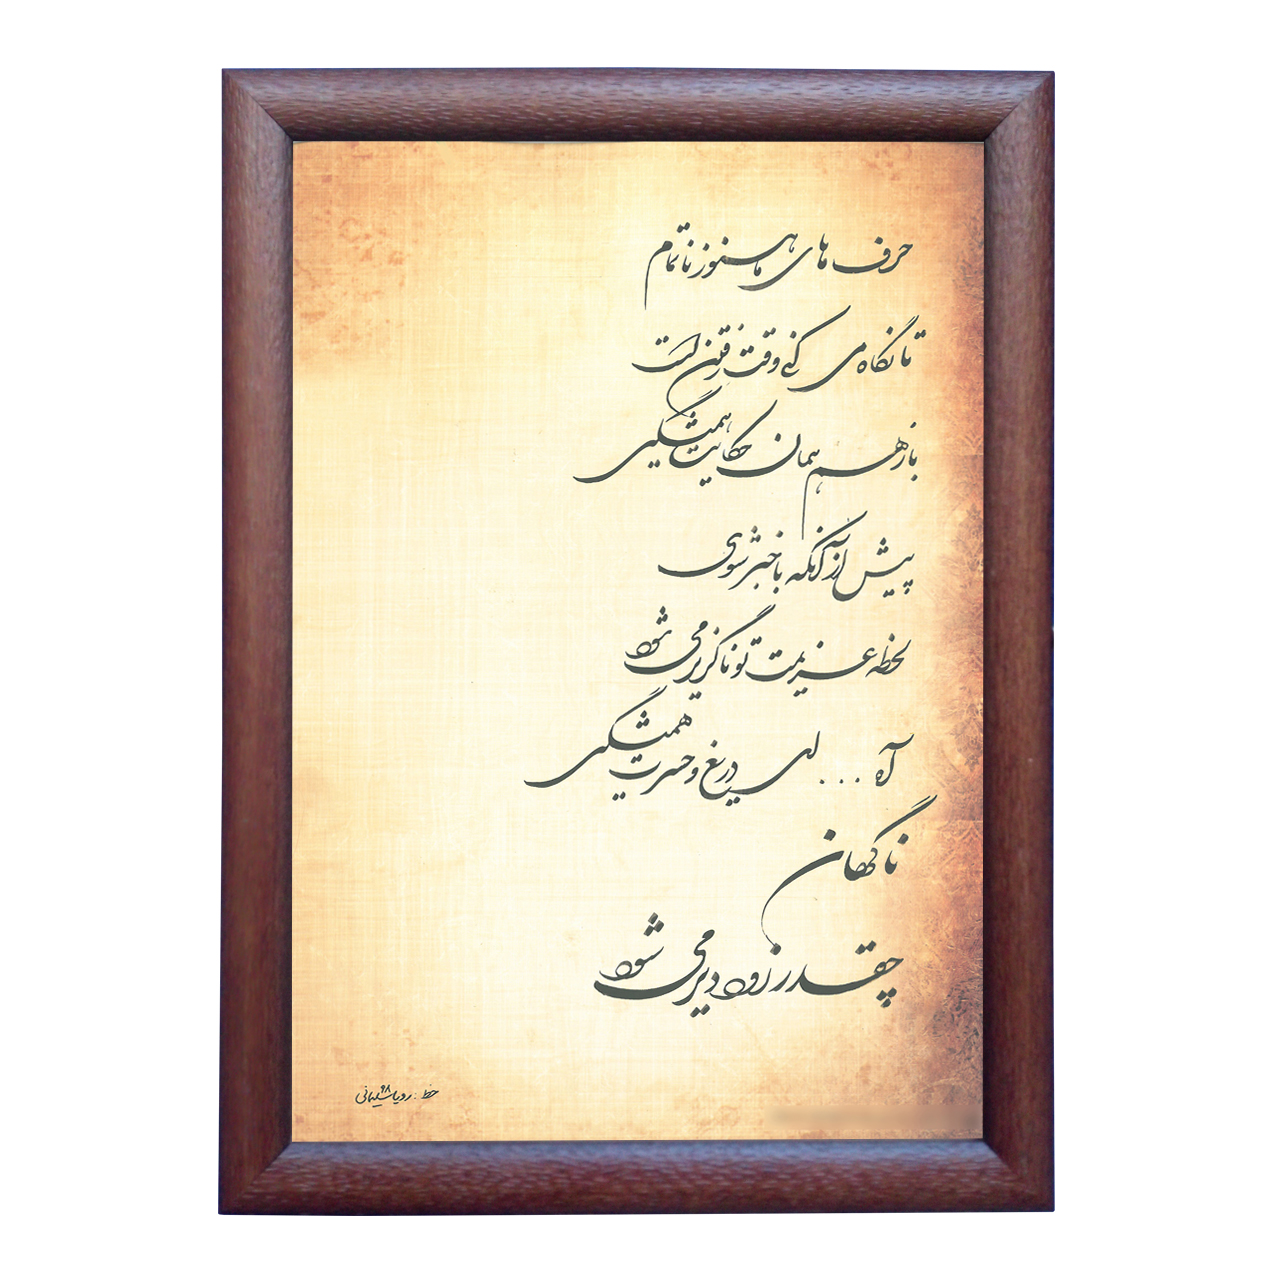 حرف های ما هنوز ناتمام
تا نگاه می کنی وقت رفتن است
باز هم همان حکایت همیشگی
پیش از آنکه با خبر شوی
لحظه عزیمت تو ناگزیر می شود
آه ... ای دریغ و حسرت همیشگی
ناگهان
چقدر زود دیر می شود
خط : رویا سلیمانی ۹۸